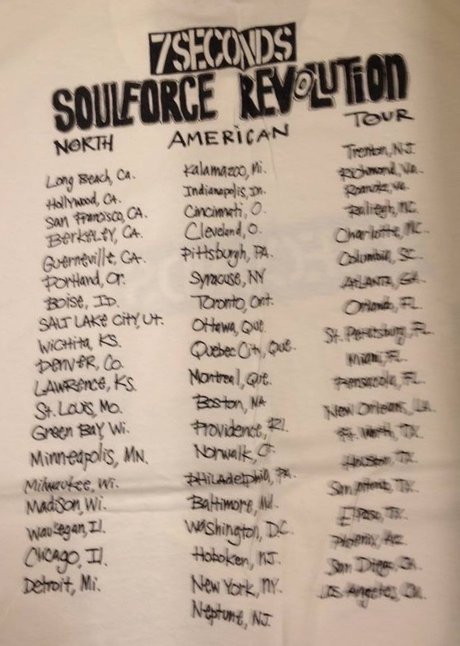 7SECONDS
SOULFORCE REVOLUTION
NORTH AMERICAN TOUR
Long Beach, Ca.
Hollywood, CA.
San Francisco, CA.
Berkeley, CA.
Guerneville, CA.
Portland, Or.
Boise, ID.
SALT LAKE CITY, UT.
Wichita, KS.
Denver, Co.
LAWRENCE, KS.
St. Louis, Mo.
Green Bay, Wi.
Minneapolis, MN.
Milwaukee, Wi.
Madison, Wi.
Waukegan, Il.
Chicago, Il.
Detroit, Mi.
Kalamazoo, Mi.
Indianapolis, In.
Cincinnati, O.
Cleveland, O.
Pittsburgh, PA.
Syracuse, NY
Toronto, Ont.
Ottawa, Que.
Quebec City, Que.
Montreal, Que.
Boston, MA
Providence, RI.
Norwalk, Ct.
PHILADELPHIA, PA.
Baltimore, Md.
Washington, D.C.
Hoboken, NJ.
New York, NY.
Neptune, NJ
Trenton, NJ.
Richmond, Va.
Roanoke, Va.
Raliegh, NC.
Charlotte, NC.
Columbia, SC.
ATLANTA, GA.
Orlando, FL.
St. Petersburg, FL.
Miami, FL.
Pensacola, FL.
New Orleans, LA.
Ft. Worth, TX.
Houston, TX.
San Antonio, TX.
El Paso, TX.
Phoenix, AZ.
San Diego, CA.
LOS Angeles, CA.